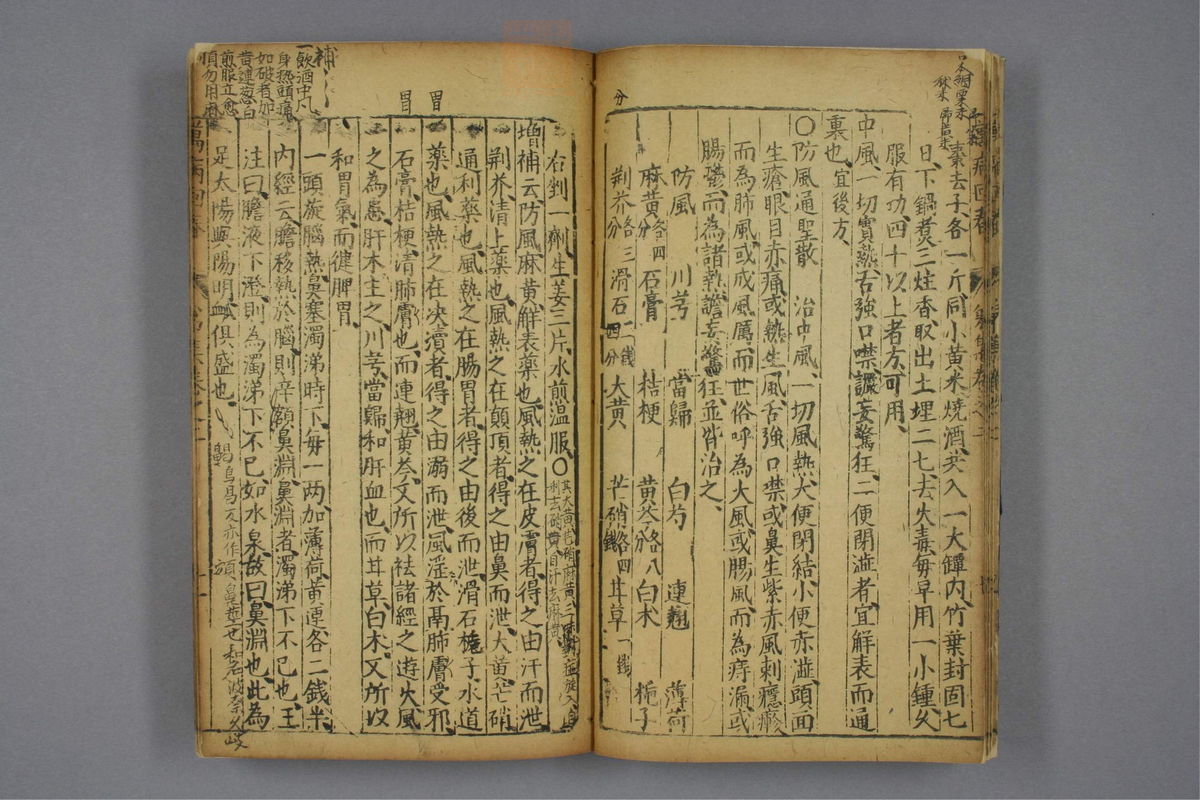 棗去子各一斤同小黃米燒酒共入一大罈內竹葉封固七
日下鍋煑三炷香取出土埋二七去火毒每早用一小鍾久
服有功四十以上者方可用
中風一切實熱舌強口噤譫妄驚狂二便閉澁者宜解表而通
裏也宜後方
○防風通聖散 治中風一切風熱大便閉結小便赤澁頭面
生瘡眼目赤痛或熱生風舌強口噤或鼻生紫赤風刺癮疹
而為肺風或成風厲而世俗呼為大風或腸風而為痔漏或
腸鬱而為諸熱譫妄驚狂並皆治之
防風 川芎 當歸 白芍 連翹 薄荷
麻黃各四分 石膏 桔梗 黃芩各八分 白朮 梔子
荆芥各三分 滑石二錢四分 大黃 芒硝各四錢 甘草一錢
分
右剉一劑生姜三片水煎温服○
增補云防風麻黃解表藥也風熱之在皮膚者得之由汗而泄
荆芥清上藥也風熱之在顛頂者得之由鼻而泄大黃芒硝
通利藥也風熱之在腸胃者得之由後而泄滑石梔子水道
藥也風熱之在决瀆者得之由溺而泄風淫於鬲肺膚受邪
石膏桔梗清肺膚也而連翹黃芩又所以祛諸經之遊火風
之為患肝木主之川芎當歸和肝血也而甘草白朮又所以
和胃氣而健脾胃
一頭旋腦熱鼻塞濁涕時下每一两加薄荷黃連各二錢半
內經云膽移熱於腦則辛頞鼻淵鼻淵者濁涕下不已也王
注曰膽液下澄則為濁涕下不已如水泉故曰鼻淵也此為
足太陽與陽明血俱盛也
胃
胃
補
一飲酒中風
身热頭痛
如破者加
黄連葱白
煎服立愈
頂勿用麻